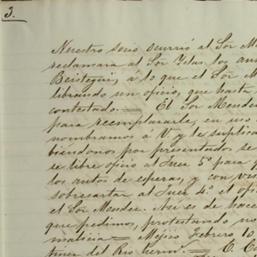 3.
Nuestro socio ocurrió al Sor M
reclamara al Sor Yelas. los au
Beistegui, á lo que el Sor M
librando un oficio, que hasta
contestado.— El Sor Mendez
para reemplazarle, en uso
nombramos á V y le suplica
biéndonos por presentados se
se libre oficio al Juez 5º para
los autos de esperas, y con vis
sobrecartar al Juez 4º el ofi
el Sor Mendez. Así es de hace
que pedimos, protestando no
malicia = Mejico Febrero 10
tiner del Rio